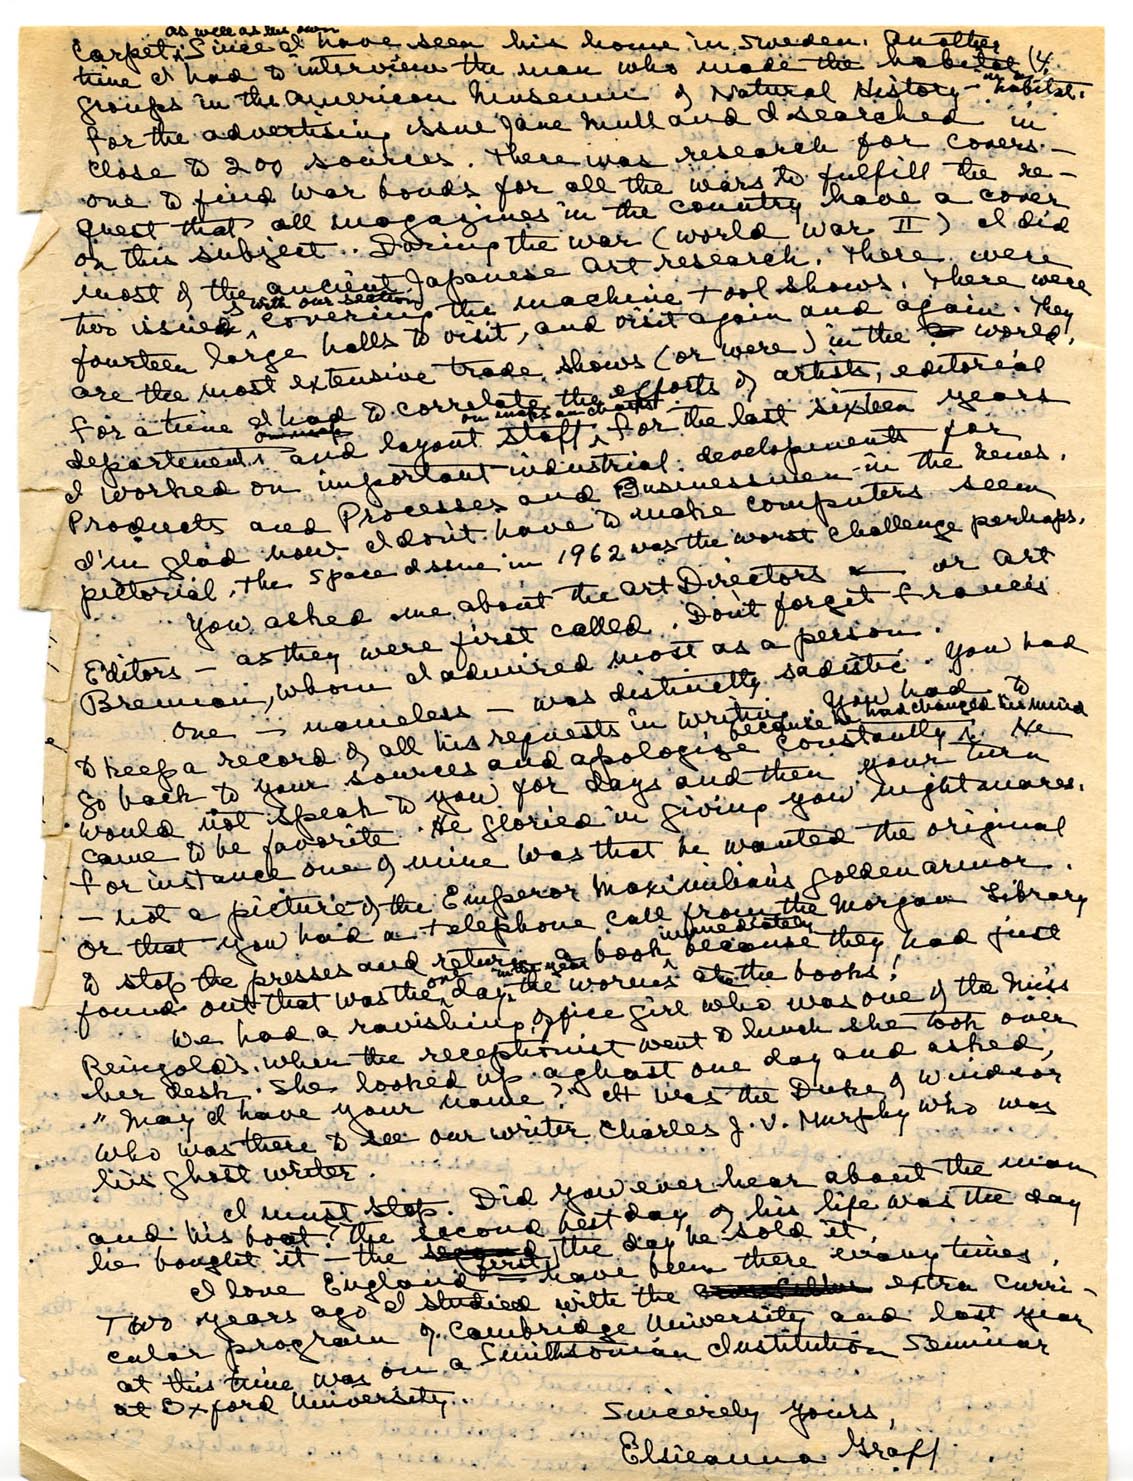 as well as his own
carpet. Since I have seen his home in Sweden. Another
time I had to interview the man who made the habitat (4.
groups in the American Museum of Natural History - habitat.
For the advertising issue Jane Mull and I searched in
close to 200 sources. There was research for covers -
one to find war bonds for all the wars to fulfill the re-
quest that all magazines in the country have a cover
on this subject.. During the war (World War II) I did
most of the ancient Japanese art research. There were
two issues with our section covering the machine tool shows. There were
fourteen large halls to visit, and visit again and again. They
are the most extensive trade shows (or were) in the world.
For a time I had to correlate the efforts of artists, editorial
departments and layout staff on maps and charts. For the last sixteen years
I worked on important industrial developments for
Products and Processes and Businessmen in the News.
I'm glad now I don't have to make computers seem
pictorial. The Space Issue in 1962 was the worst challenge perhaps.
You asked me about the Art Directors or Art
Editors - as they were first called. Don't forget Francis
Brennan, whom I admired most as a person.
One - nameless - was distinctly sadistic. You had
to keep a record of all his requests in writing. You had to
go back to your sources and apologize constantly because he had changed his mind. He
would not speak to you for days and then your turn
came to be favorite. He gloried in giving you nightmares.
For instance one of mine was that he wanted the original
- not a picture of the Emperor Maximilian's golden armor.
Or that you had a telephone call from the Morgan Library
to stop the presses and return a book immediately because they had just
found out that was the one day in the year the worms ate the books!
We had a ravishing office girl who was one of the Miss
Reingolds. When the receptionist went to lunch she took over
her desk. She looked up aghast one day and asked,
"May I have your name?" It was the Duke of Windsor
who was there to see our writer Charles J. V. Murphy who was
his ghost writer.
I must stop. Did you ever hear about the man
and his boat? The second best day of his life was the day
he bought it - the first, the day he sold it.
I love England - have been there many times.
Two years ago I studied with the extra curri-
cular program of Cambridge University and last year
at this time was on a Smithsonian Institution Seminar
at Oxford University.
Sincerely yours,
Elsieanna Graff